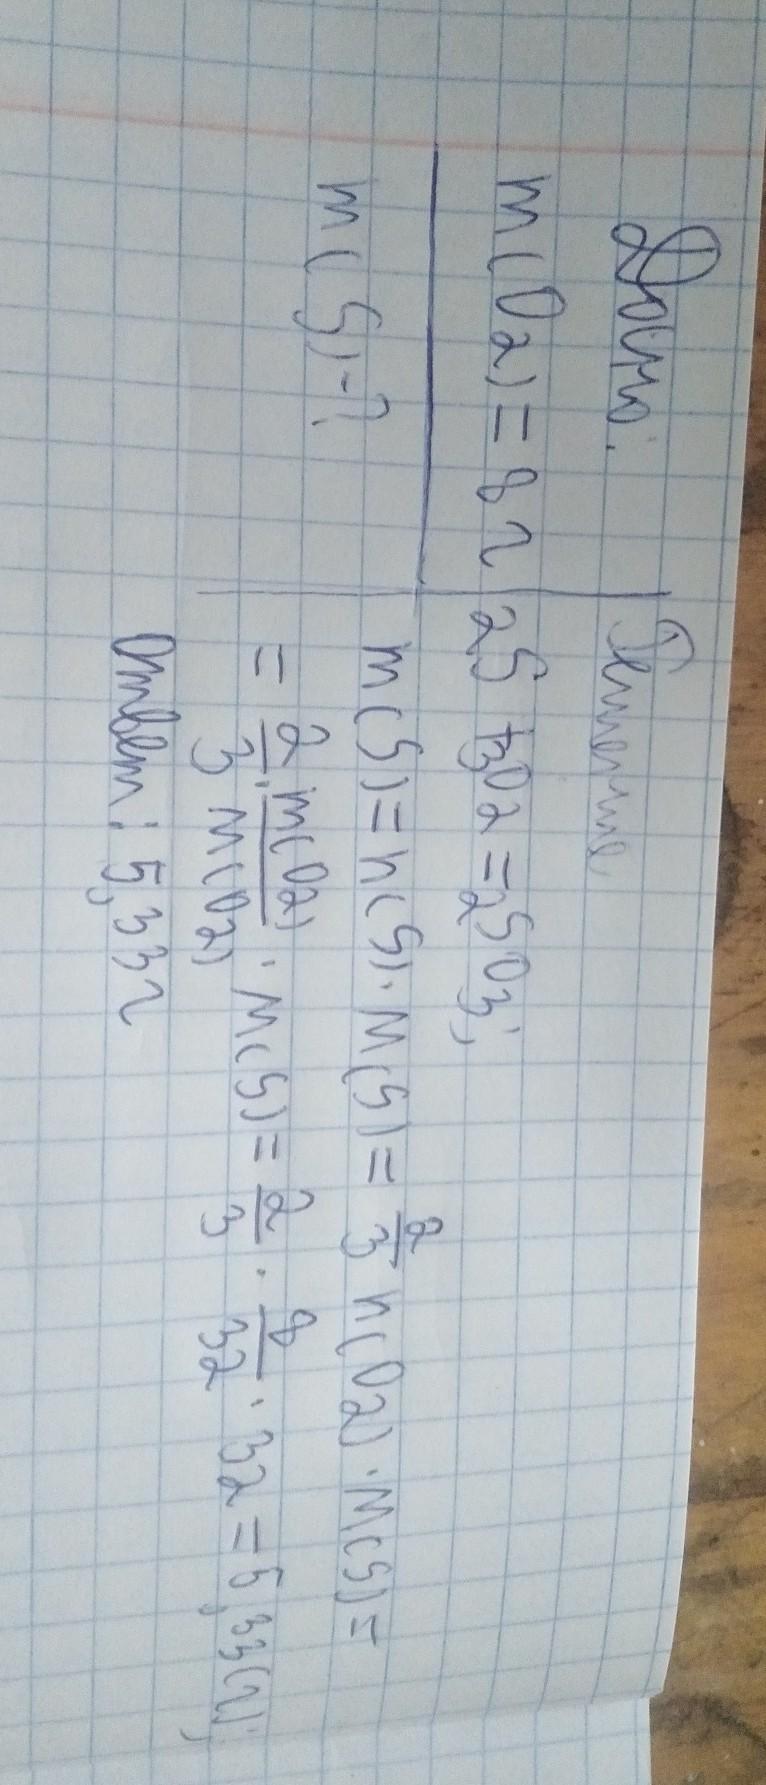 Дано:
m(O2)=8г
m(S)-?
Решение
2S+3O2=2SO3;
m(S)=n(S)·M(S)=2/3 n(O2)·M(S)=
=2/3·m(O2)/M(O2)·M(S)=2/3·8/32·32=5,33(г);
Ответ: 5,33г